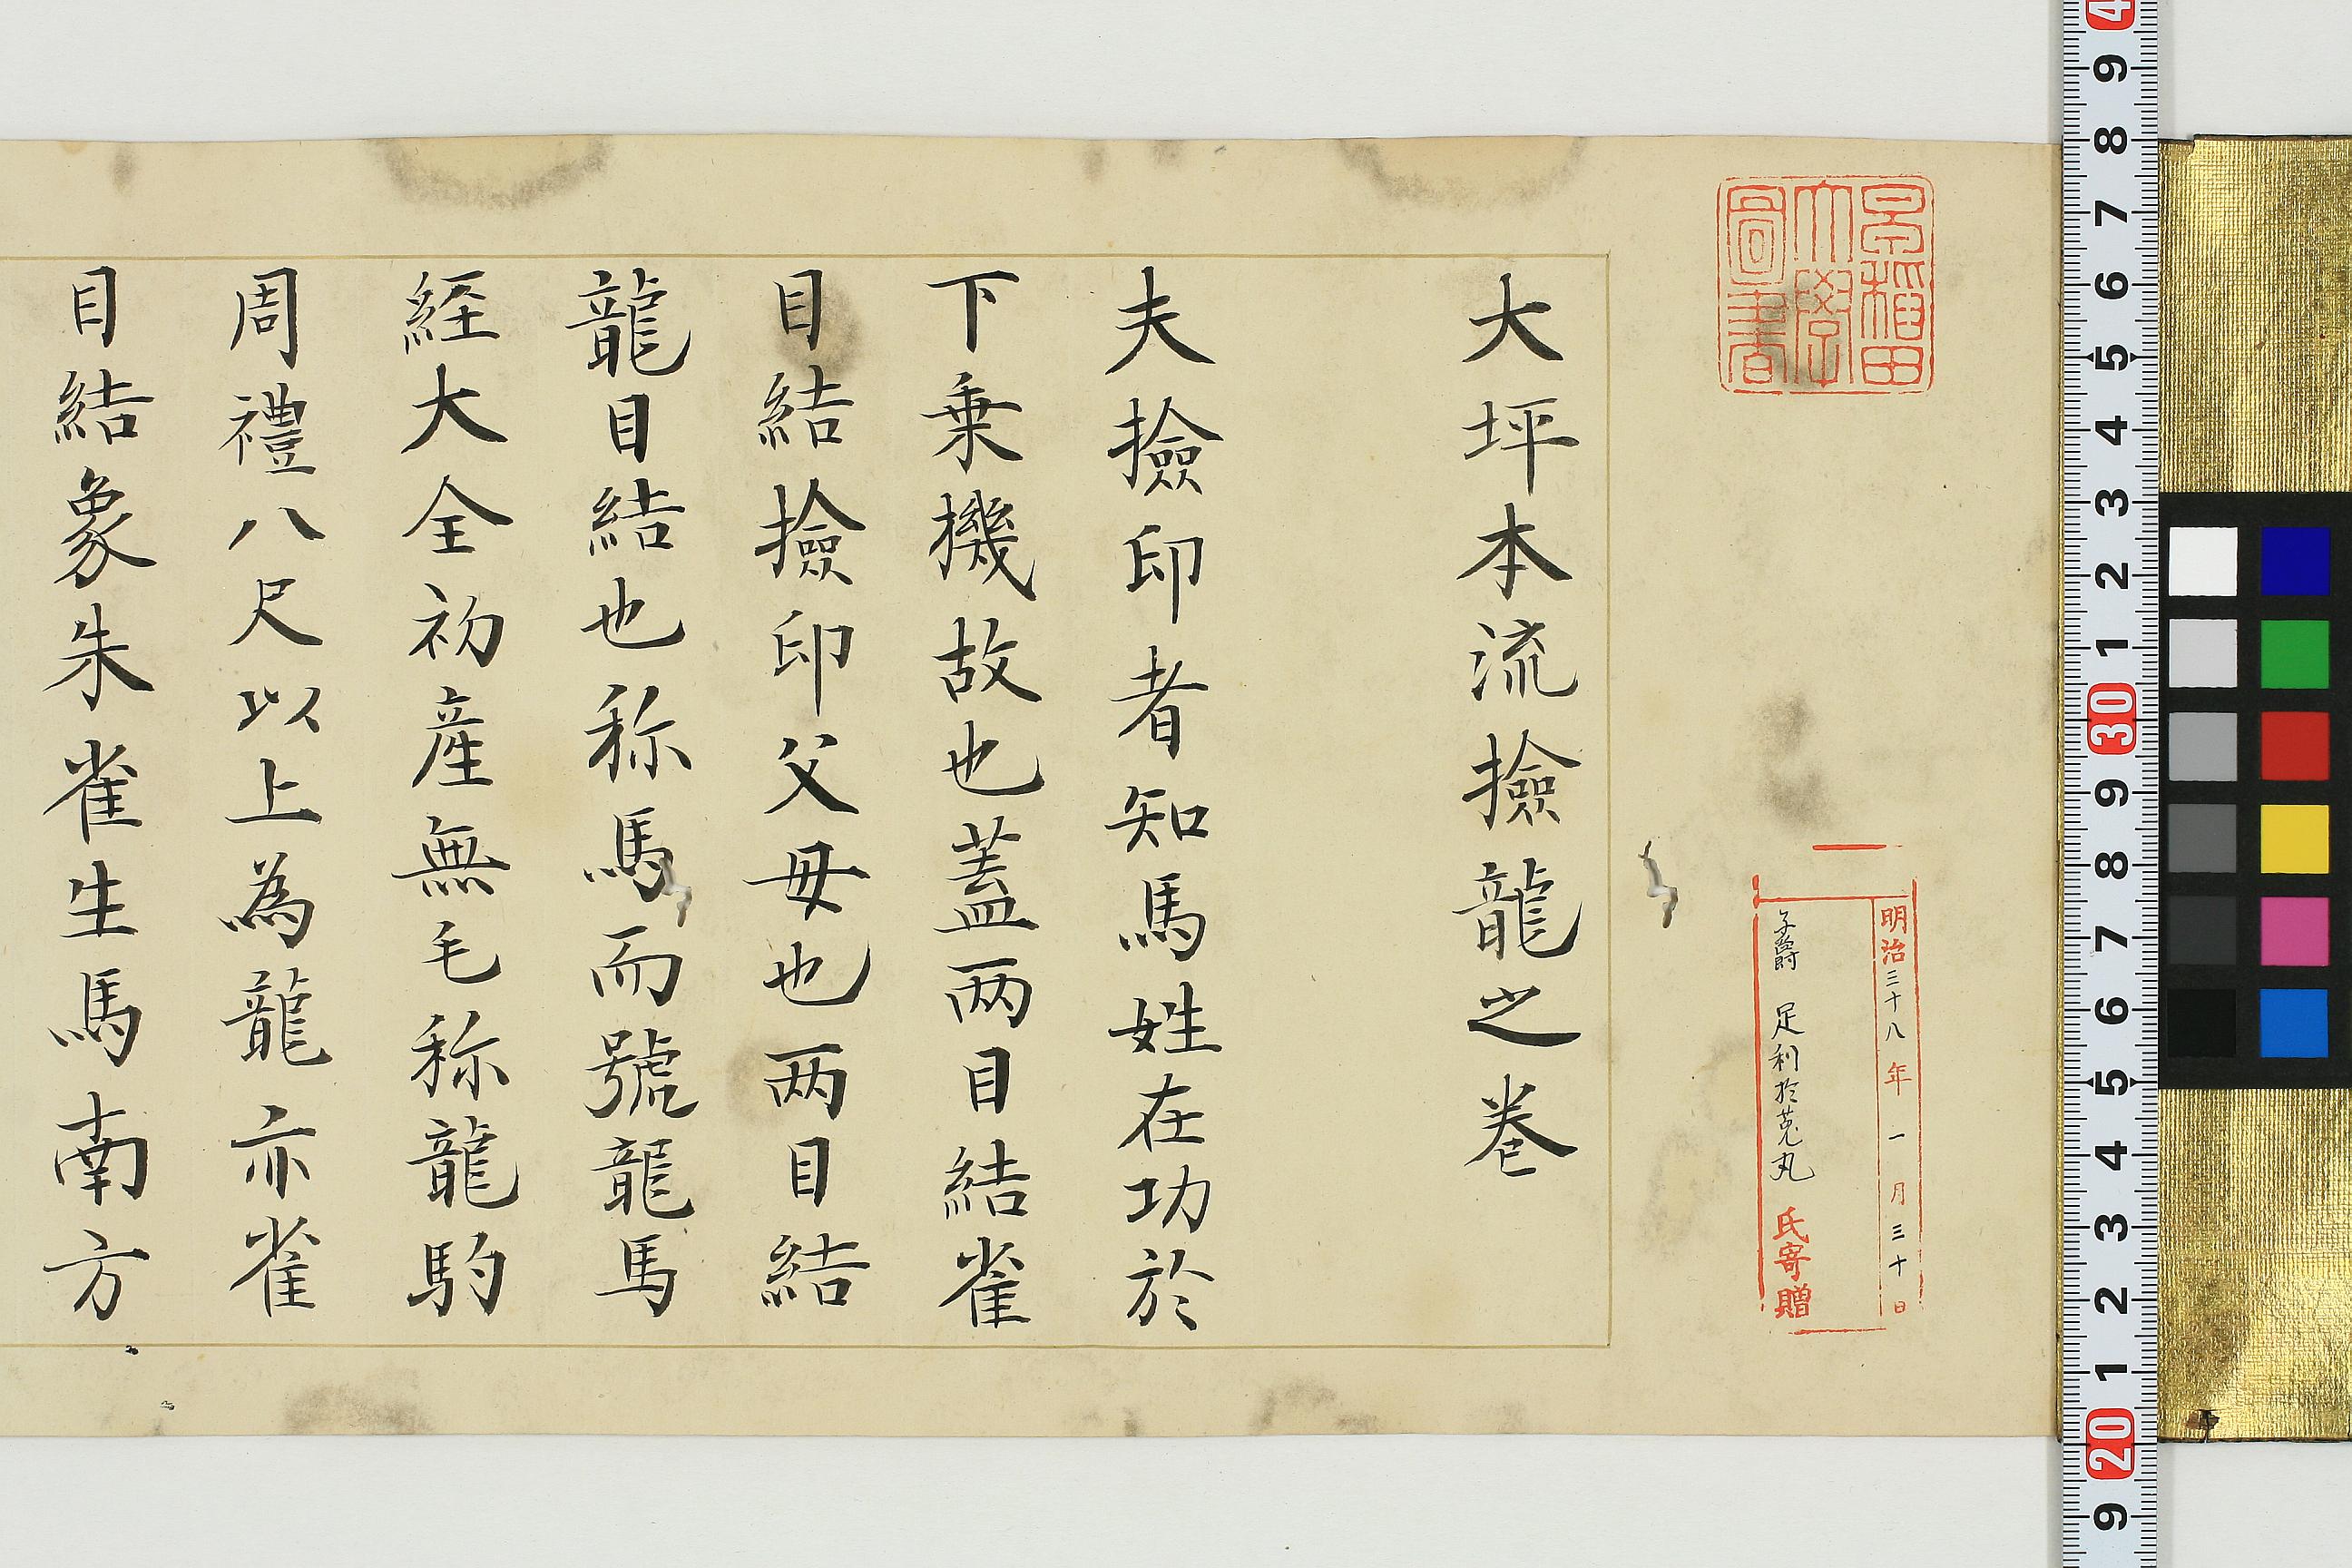 早稲田
大學
圖書
明治三十八年一月三十日
子爵 足利於菟丸 氏寄贈
大坪本流撿龍之巻
夫撿印者知馬姓在功於
下乗機故也蓋两目結雀
目結撿印父母也两目結
龍目結也称馬而號龍馬
経大全初産無毛称龍駒
周禮八尺以上為龍亦雀
目結象朱雀生馬南方
4
9
8
7
6
5
4
3
2
1
30
9
8
7
6
5
4
3
2
1
20
9